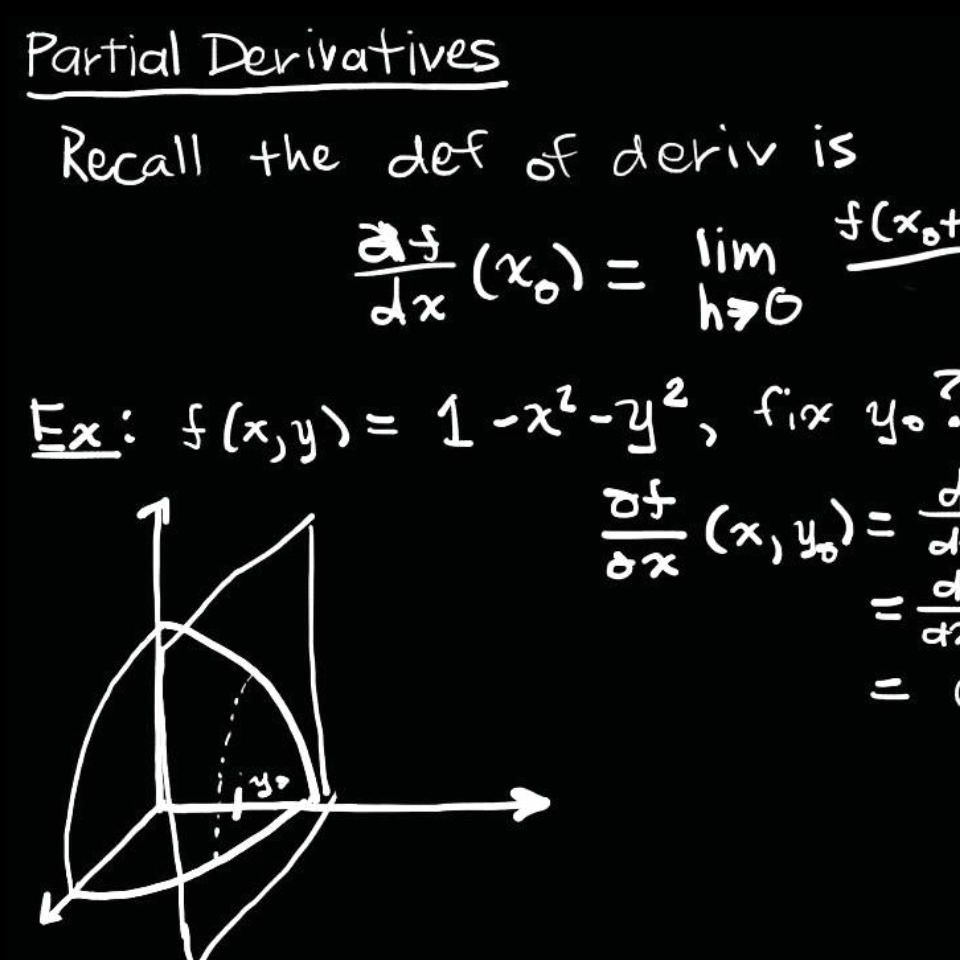 Partial Derivatives
Recall the def of deriv is
df/dx (x₀) = lim h→0 f(x₀+
Ex: f(x,y) = 1 - x² - y², fix y₀?
∂f/∂x (x, y₀) = d/d
= d/dx
=
y₀